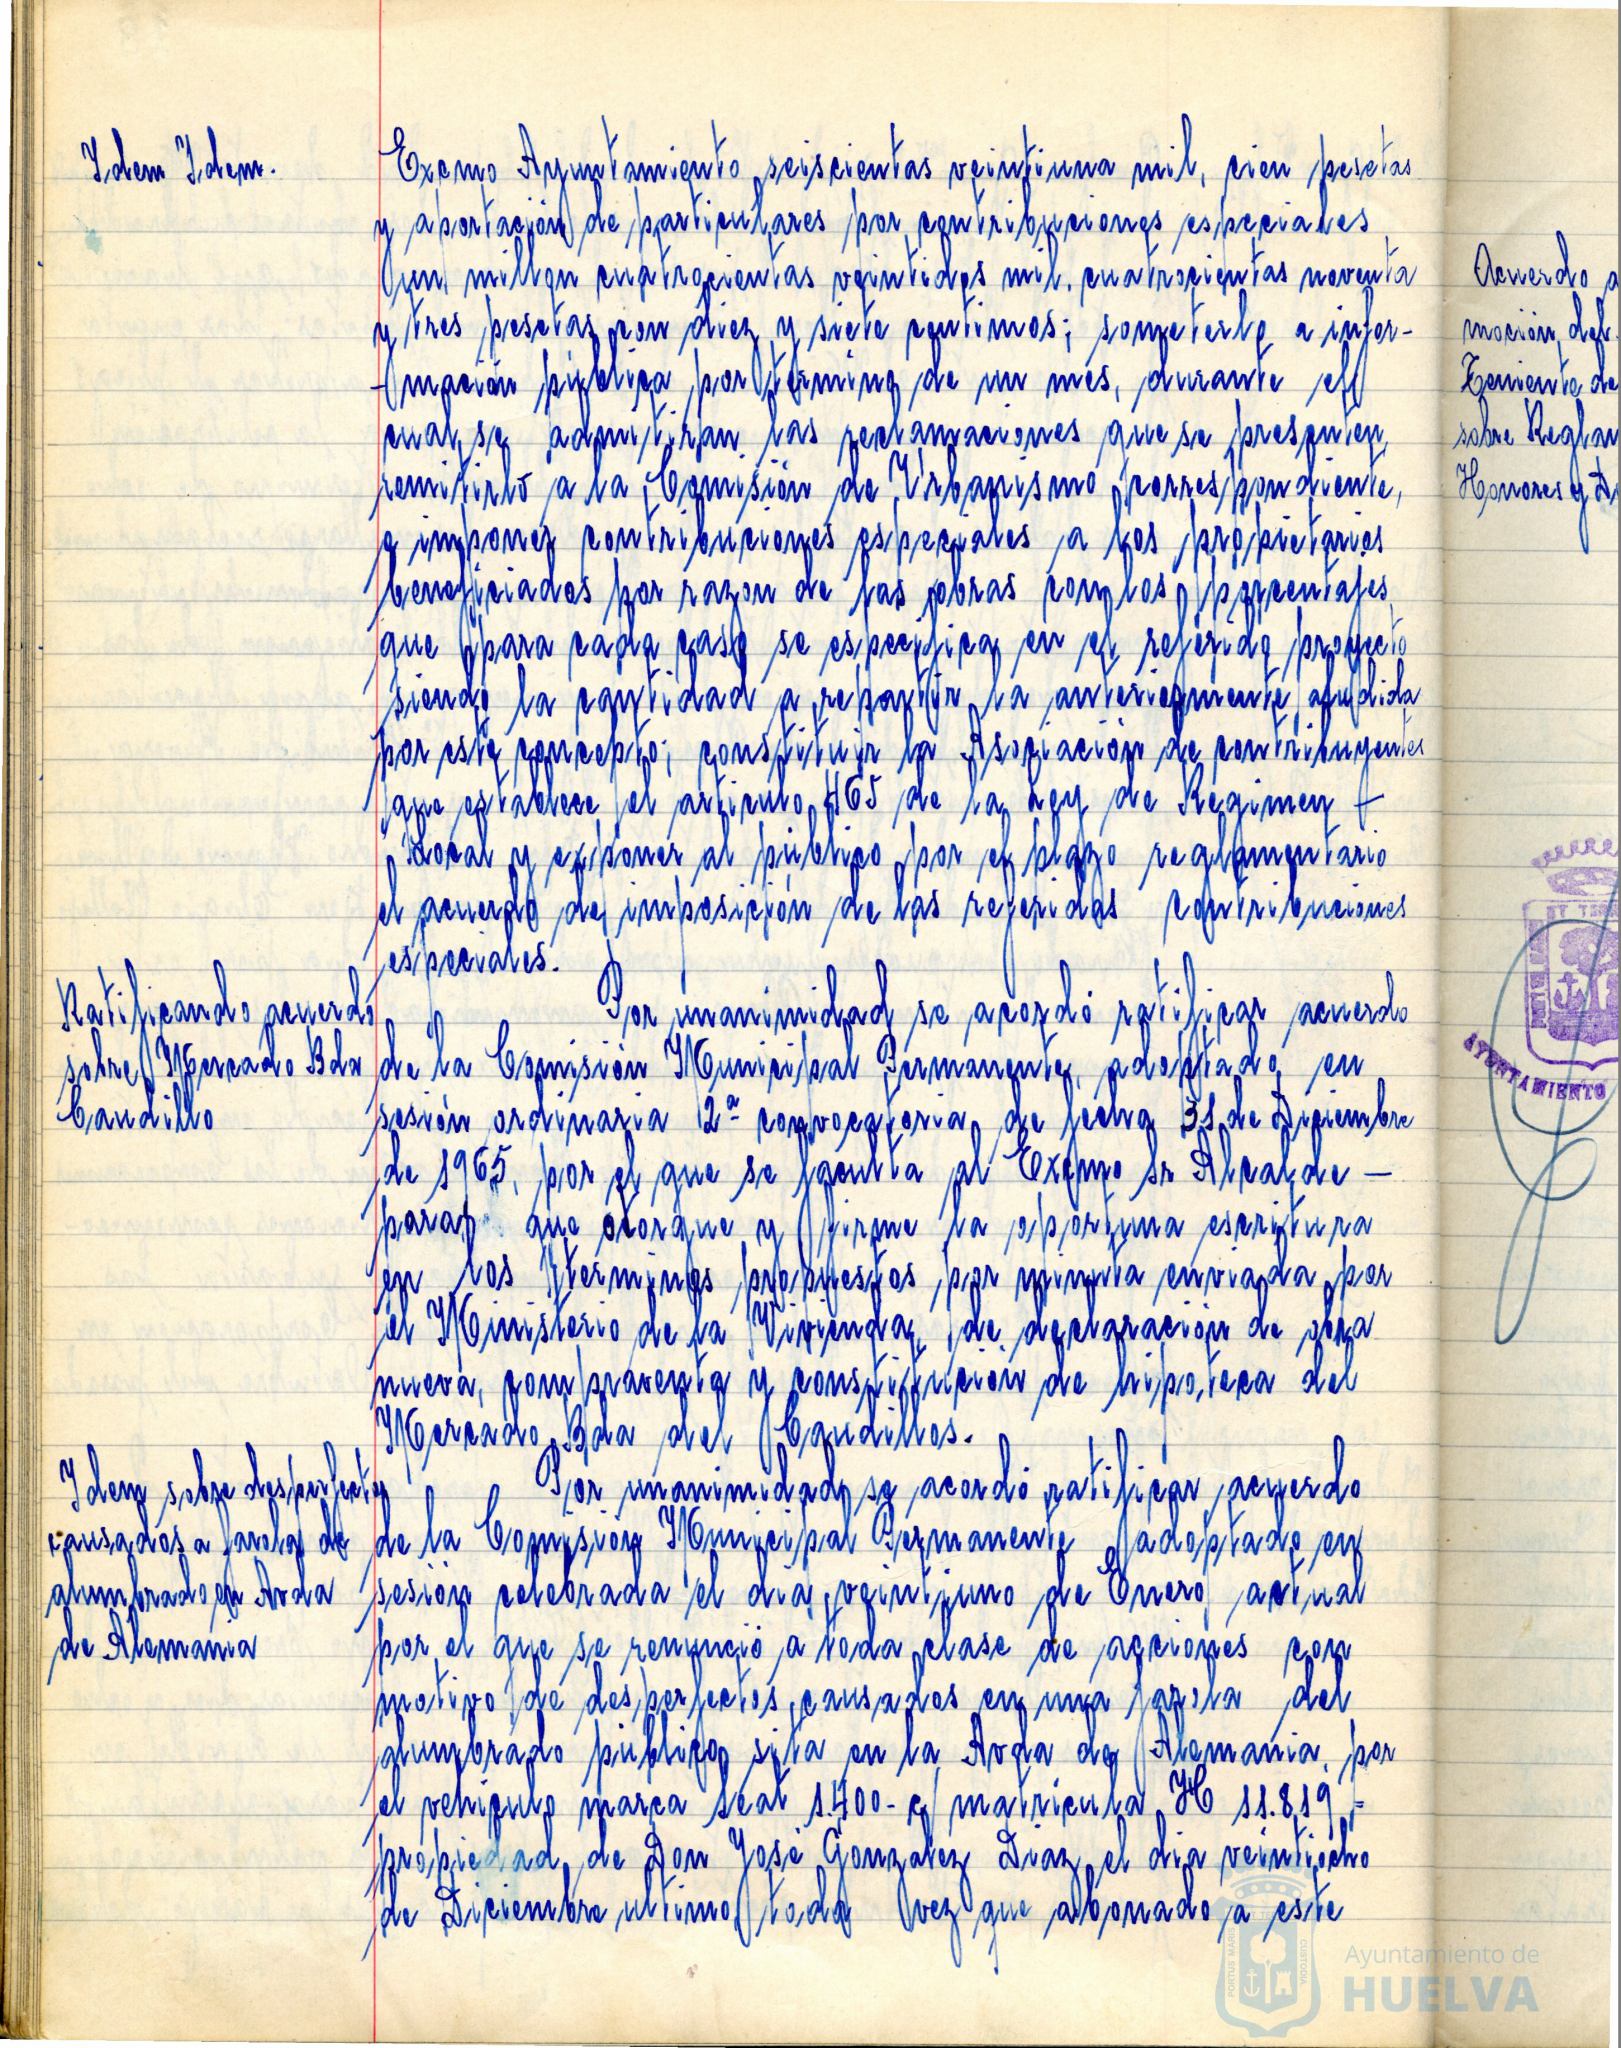 Idem Idem.
Excmo Ayuntamiento seiscientas veintiuna mil, cien pesetas
y aportación de particulares por contribuciones especiales
un millon cuatrocientas veintidos mil cuatrocientas noventa
y tres pesetas con diez y siete centimos; someterlo a infor-
mación publica por termino de un mes, durante el
cual se admitiran las reclamaciones que se presenten,
remitirlo a la Comisión de Urbanismo correspondiente,
e imponer contribuciones especiales a los propietarios
beneficiados por razon de las obras con los porcentajes
que para cada caso se especifica en el referido proyecto
siendo la cantidad a repartir la anteriormente aludida
por este concepto; constituir la Asociación de contribuyentes
que establece el articulo 465 de la Ley de Regimen -
Local y exponer al público por el plazo reglamentario
el acuerdo de imposición de las referidas contribuciones
especiales.
Ratificando acuerdo
sobre Mercado Bda
Caudillo
Por unanimidad se acordó ratificar acuerdo
de la Comisión Municipal Permanente, adoptado en
sesión ordinaria 2ª convocatoria de fecha 31 de Diciembre
de 1965, por el que se faculta al Excmo Sr Alcalde -
para que otorgue y firme la oportuna escritura
en los terminos propuestos por minuta enviada por
el Ministerio de la Vivienda, de declaración de obra
nueva, compraventa y constitución de hipoteca del
Mercado Bda del Caudillos.
Idem sobre desperfectos
causados a farola de
alumbrado en Avda
de Alemania
Por unanimidad se acordó ratificar acuerdo
de la Comisión Municipal Permanente adoptado en
sesión celebrada el dia veintiuno de Enero actual
por el que se renunció a toda clase de acciones con
motivo de desperfectos causados en una farola del
alumbrado publico sita en la Avda de Alemania, por
el vehiculo marca Seat 1.400-c matricula H 11.819 =
propiedad de Don José Gonzalez Diaz el dia veintiocho
de Diciembre ultimo toda vez que abonado a este
Acuerdo a
moción del
Teniente de
sobre Reglam
Honores y Di
AYUNTAMIENTO
PORTUS MARIS
CUSTODIA
Ayuntamiento de
HUELVA